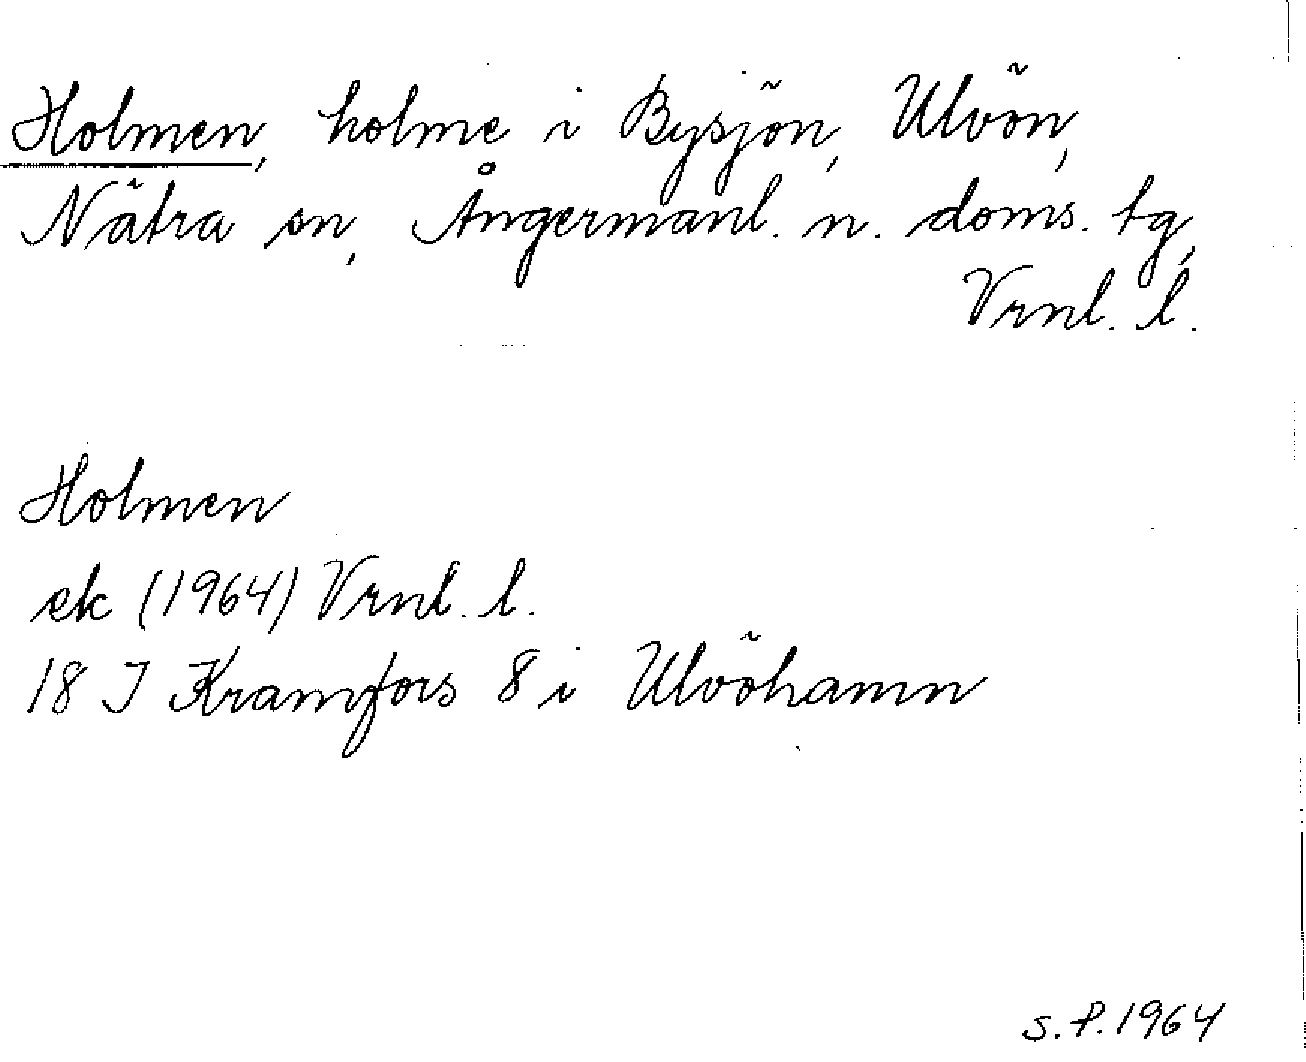 Holmen, holme i Bysjön, Ulvön,
Nätra sn, Ångermanl. n. doms. tg,
Vrnl. l.
Holmen
ek (1964) Vrnl. l.
18 I Kramfors 8 i Ulvöhamn
S.P. 1964